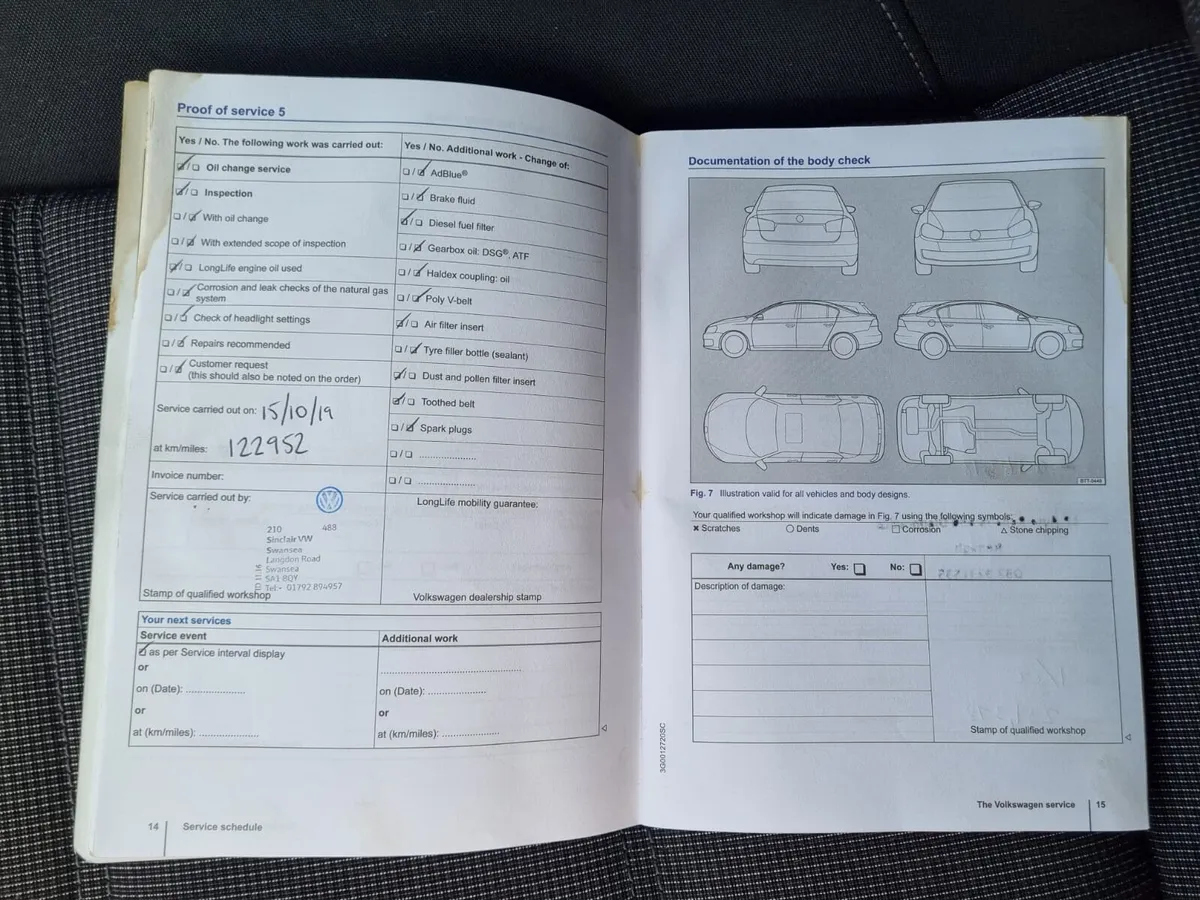 Proof of service 5
Yes / No. The following work was carried out:
☑/☐ Oil change service
☑/☐ Inspection
☐/☑ With oil change
☐/☑ With extended scope of inspection
☑/☐ LongLife engine oil used
☐/☑ Corrosion and leak checks of the natural gas
system
☐/☑ Check of headlight settings
☐/☑ Repairs recommended
☐/☑ Customer request
(this should also be noted on the order)
Service carried out on: 15/10/19
at km/miles: 122952
Invoice number:
Service carried out by:
210 488
Sinclair VW
Swansea
Langdon Road
Swansea
SA1 8QY
Tel:- 01792 894957
Stamp of qualified workshop
Yes / No. Additional work - Change of:
☐/☑ AdBlue®
☐/☑ Brake fluid
☑/☐ Diesel fuel filter
☐/☑ Gearbox oil: DSG®, ATF
☐/☑ Haldex coupling: oil
☐/☑ Poly V-belt
☑/☐ Air filter insert
☐/☑ Tyre filler bottle (sealant)
☑/☐ Dust and pollen filter insert
☑/☐ Toothed belt
☐/☑ Spark plugs
☐/☐ ......................
☐/☐ ......................
LongLife mobility guarantee:
Volkswagen dealership stamp
Your next services
Service event
☑ as per Service interval display
or
on (Date): ......................
or
at (km/miles): ......................
Additional work
.....................................................
on (Date): ......................
or
at (km/miles): ......................
14 Service schedule
Documentation of the body check
BTT-0449
Fig. 7 Illustration valid for all vehicles and body designs.
Your qualified workshop will indicate damage in Fig. 7 using the following symbols:
✖ Scratches ○ Dents ☐ Corrosion △ Stone chipping
Any damage? Yes: ☐ No: ☐
Description of damage:
Stamp of qualified workshop
3G0012720SC
The Volkswagen service 15